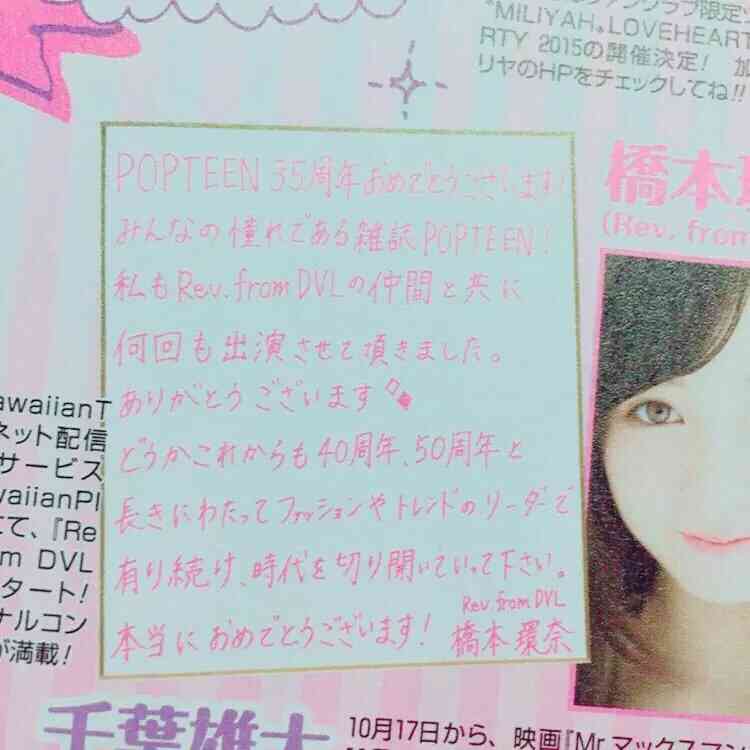 ァンクラブ限定
"MILIYAH♥LOVEHEART
RTY 2015の開催決定! 加
リヤのHPをチェックしてね!!
POPTEEN 35周年おめでとうございます!
みんなの憧れである雑誌POPTEEN!
私もRev.from DVLの仲間と共に
何回も出演させて頂きました。
ありがとうございます
どうかこれからも40周年、50周年と
長きにわたってファッションやトレンドのリーダーで
有り続け、時代を切り開いていって下さい。
本当におめでとうございます!
Rev.from DVL
橋本環奈
橋本
(Rev. from
awaiianT
ネット配信
サービス
waiianPl
にて、『Re
om DVL
タート!
ナルコン
が満載!
千葉雄大
10月17日から、映画『Mr.マックスマン